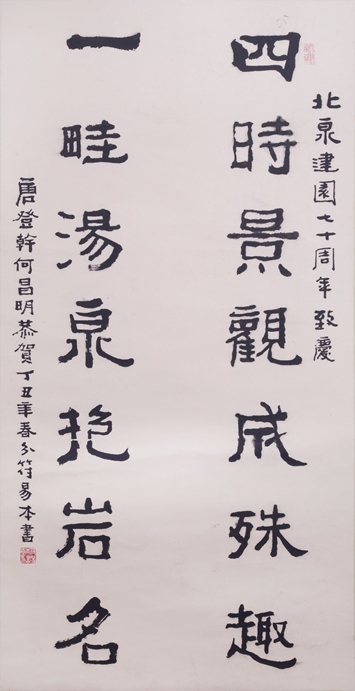 北泉建園七十周年致慶
四時景觀成殊趣
一畦湯泉挹岩名
唐登幹何昌明恭賀丁丑年春分符易本書